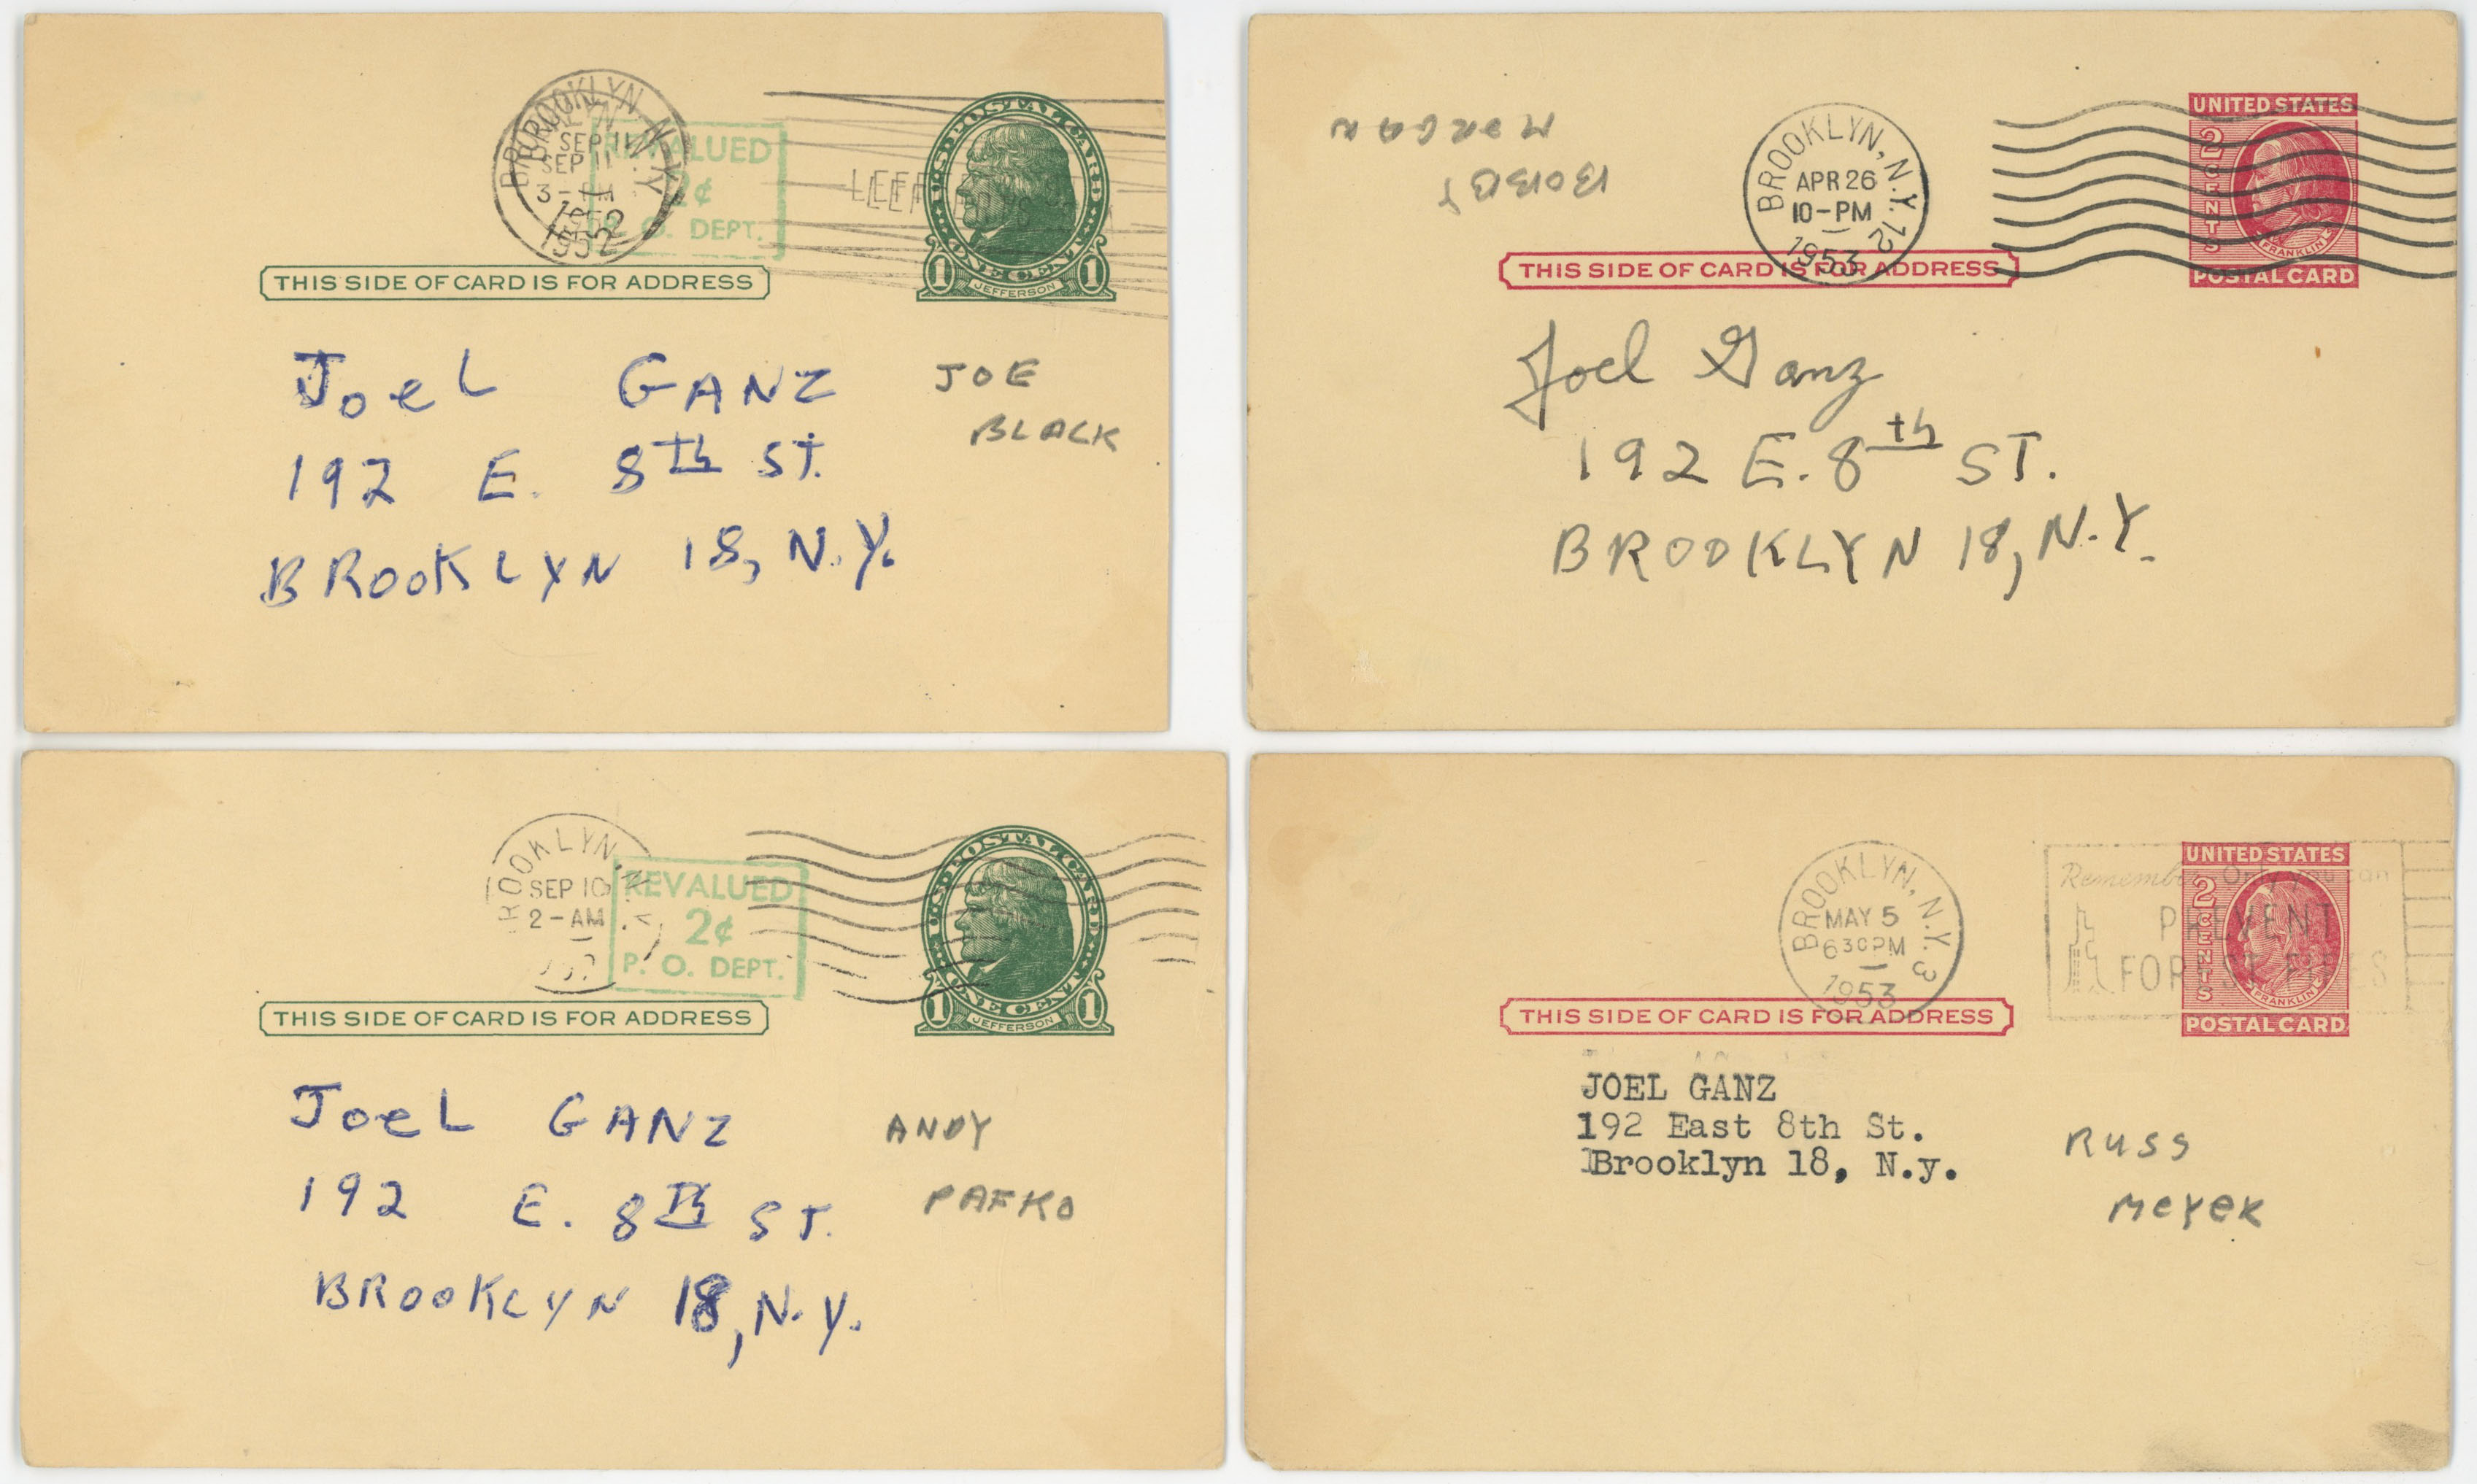 BROOKLYN, N.Y.
SEP 11
3-PM
1952
REVALUED
2¢
P. O. DEPT.
U.S. POSTAL CARD
ONE CENT
1 JEFFERSON 1
THIS SIDE OF CARD IS FOR ADDRESS
Joel GANZ
192 E. 8th ST.
BROOKLYN 18, N.Y.
JOE
BLACK
BOBBY
MORGAN
BROOKLYN, N.Y. 12
APR 26
10-PM
1953
UNITED STATES
2 CENTS
FRANKLIN
POSTAL CARD
THIS SIDE OF CARD IS FOR ADDRESS
Joel Ganz
192 E. 8th ST.
BROOKLYN 18, N.Y.
ROOKLYN
SEP 10
2-AM
REVALUED
2¢
P. O. DEPT.
U.S. POSTAL CARD
ONE CENT
1 JEFFERSON 1
THIS SIDE OF CARD IS FOR ADDRESS
Joel GANZ
192 E. 8th ST.
BROOKLYN 18, N.Y.
ANDY
PAFKO
BROOKLYN, N.Y. 3
MAY 5
630PM
1953
Remember Only you can
PREVENT
FOREST FIRES
UNITED STATES
2 CENTS
FRANKLIN
POSTAL CARD
THIS SIDE OF CARD IS FOR ADDRESS
JOEL GANZ
192 East 8th St.
Brooklyn 18, N.y.
RUSS
MEYER